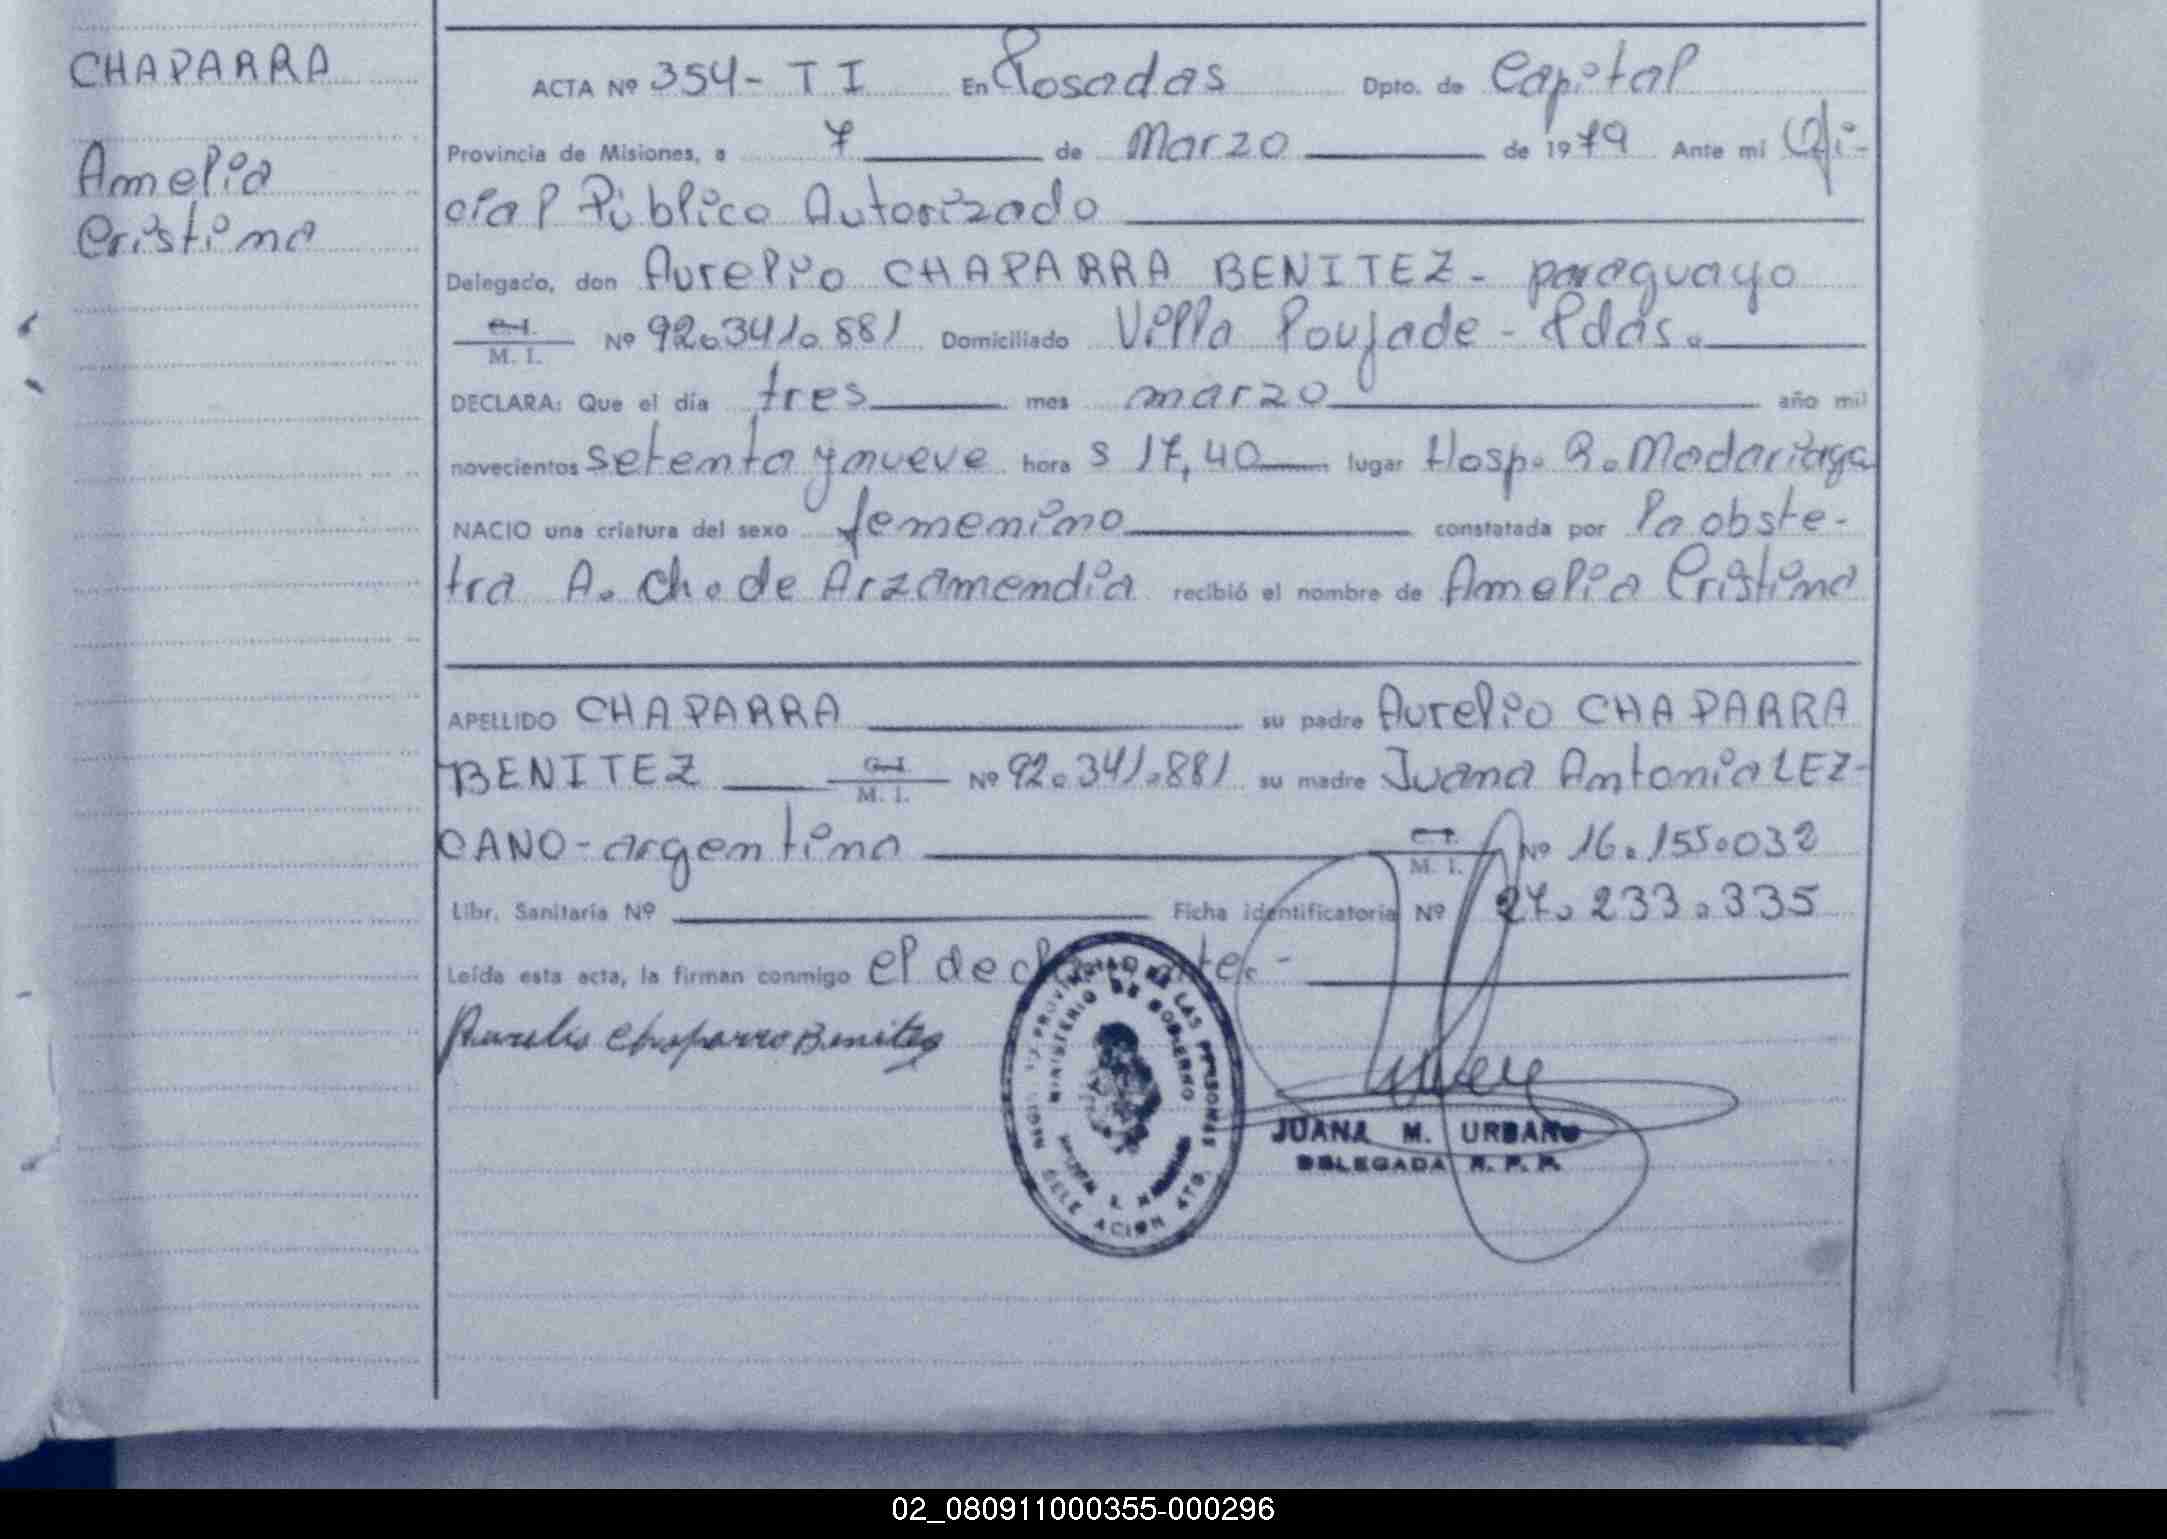 CHAPARRA
Amelia
Cristina
ACTA Nº 354- T I En Posadas Dpto. de Capital
Provincia de Misiones, a 7 de Marzo de 1979 Ante mi Ofi-
cial Público Autorizado
Delegado, don Aurelio CHAPARRA BENITEZ - paraguayo
C.I. M. I. Nº 92.341.881 Domiciliado Villa Poujade - Pdas.
DECLARA: Que el día tres mes marzo año mil
novecientos setenta y nueve hora s 17,40 lugar Hosp. R. Madariaga
NACIO una criatura del sexo femenino constatada por la obste-
tra A. Ch. de Arzamendia recibió el nombre de Amelia Cristina
APELLIDO CHAPARRA su padre Aurelio CHAPARRA
BENITEZ C.I. M. I. Nº 92.341.881 su madre Juana Antonia LEZ-
CANO - argentina C.I. M. I. Nº 16.155.032
Libr. Sanitaria Nº Ficha identificatoria Nº 27.233.335
Leída esta acta, la firman conmigo el declarante. -
Aurelio Chaparro Benitez
MINISTERIO DE GOBIERNO
JUANA M. URBANO
DELEGADA R. P. P.
02_080911000355-000296